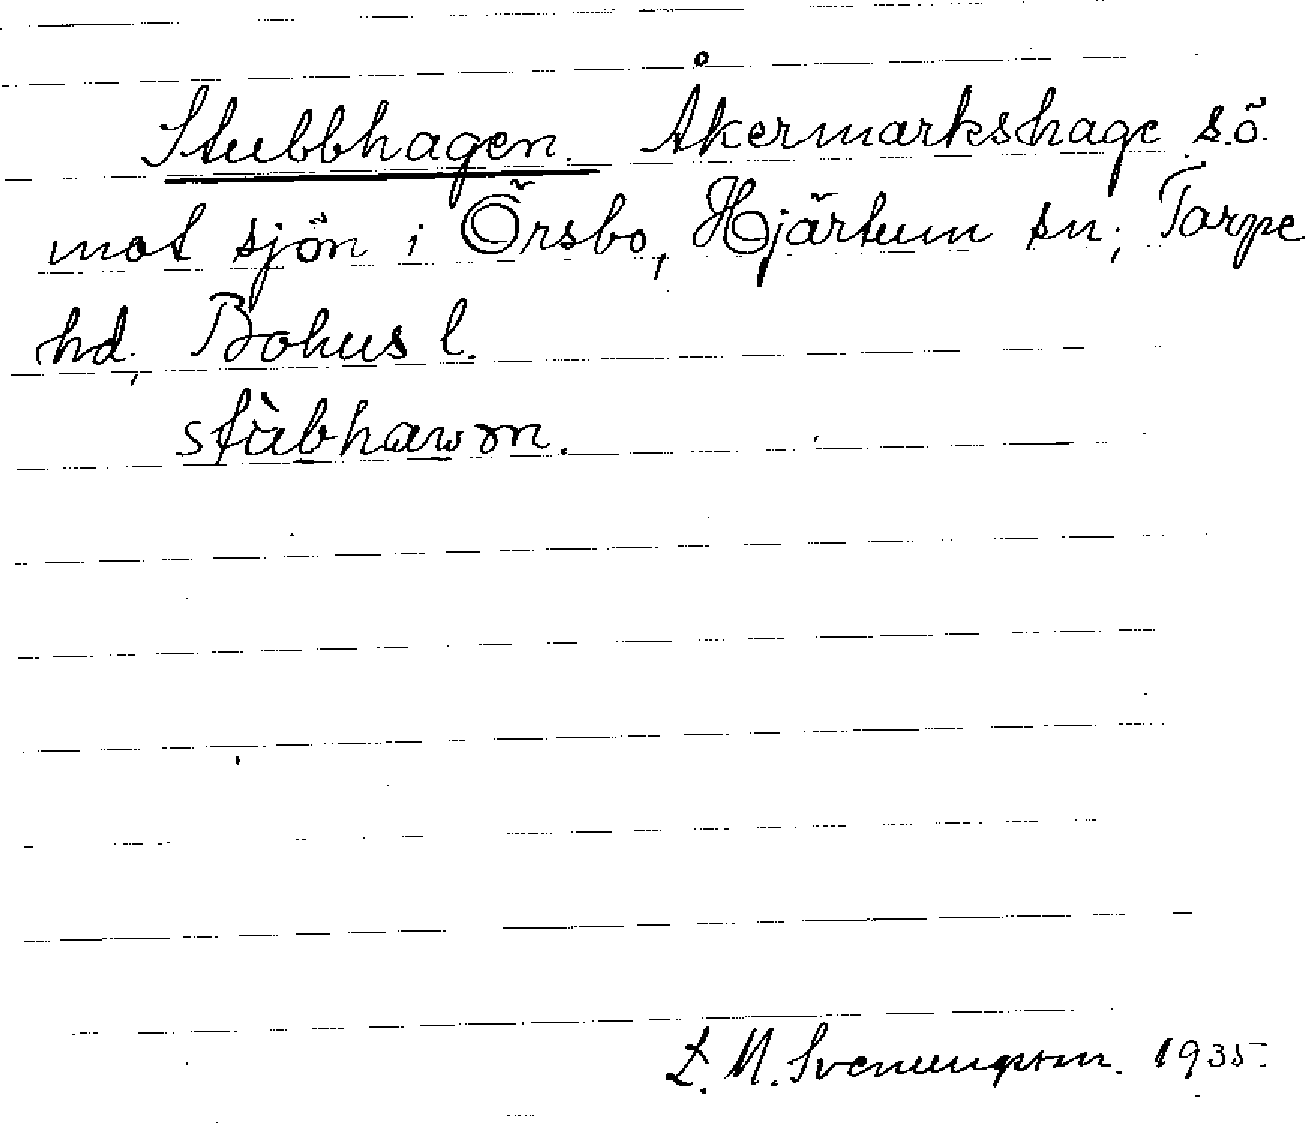 Stubbhagen. Åkermarkshage s.ö.
mot sjön i Örsbo, Hjärtum sn; Torpe
hd, Bohus l.
stùbhawɷn.
L. M. Svenungsson. 1935.